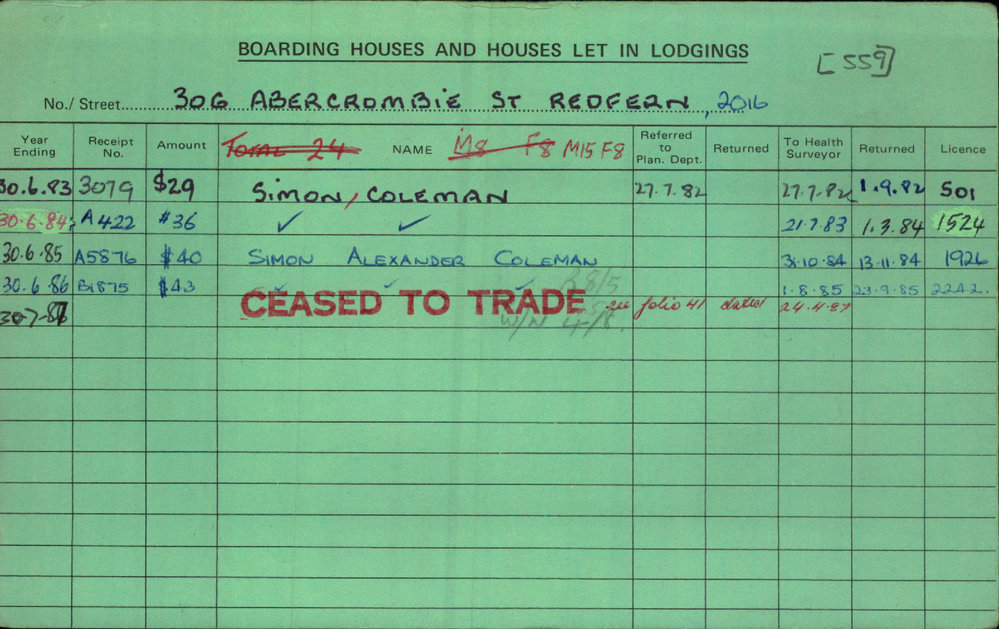 BOARDING HOUSES AND HOUSES LET IN LODGINGS
[559]
No./ Street 306 ABERCROMBIE ST REDFERN, 2016
Year Ending Receipt No. Amount Total 24 NAME M8 F8 M15 F8 Referred to Plan. Dept. Returned To Health Surveyor Returned Licence
30.6.83 3079 $29 SIMON / COLEMAN 27.7.82 27.7.82 1.9.82 501
30.6.84 A422 $36 ✓ ✓ 21.7.83 1.3.84 1524
30.6.85 A5876 $40 SIMON ALEXANDER COLEMAN 31.10.84 13.11.84 1926
30.6.86 B1875 $43 ✓ ✓ ✓ 1.8.85 23.9.85 2242.
CEASED TO TRADE see folio 41 dated 24.4.87